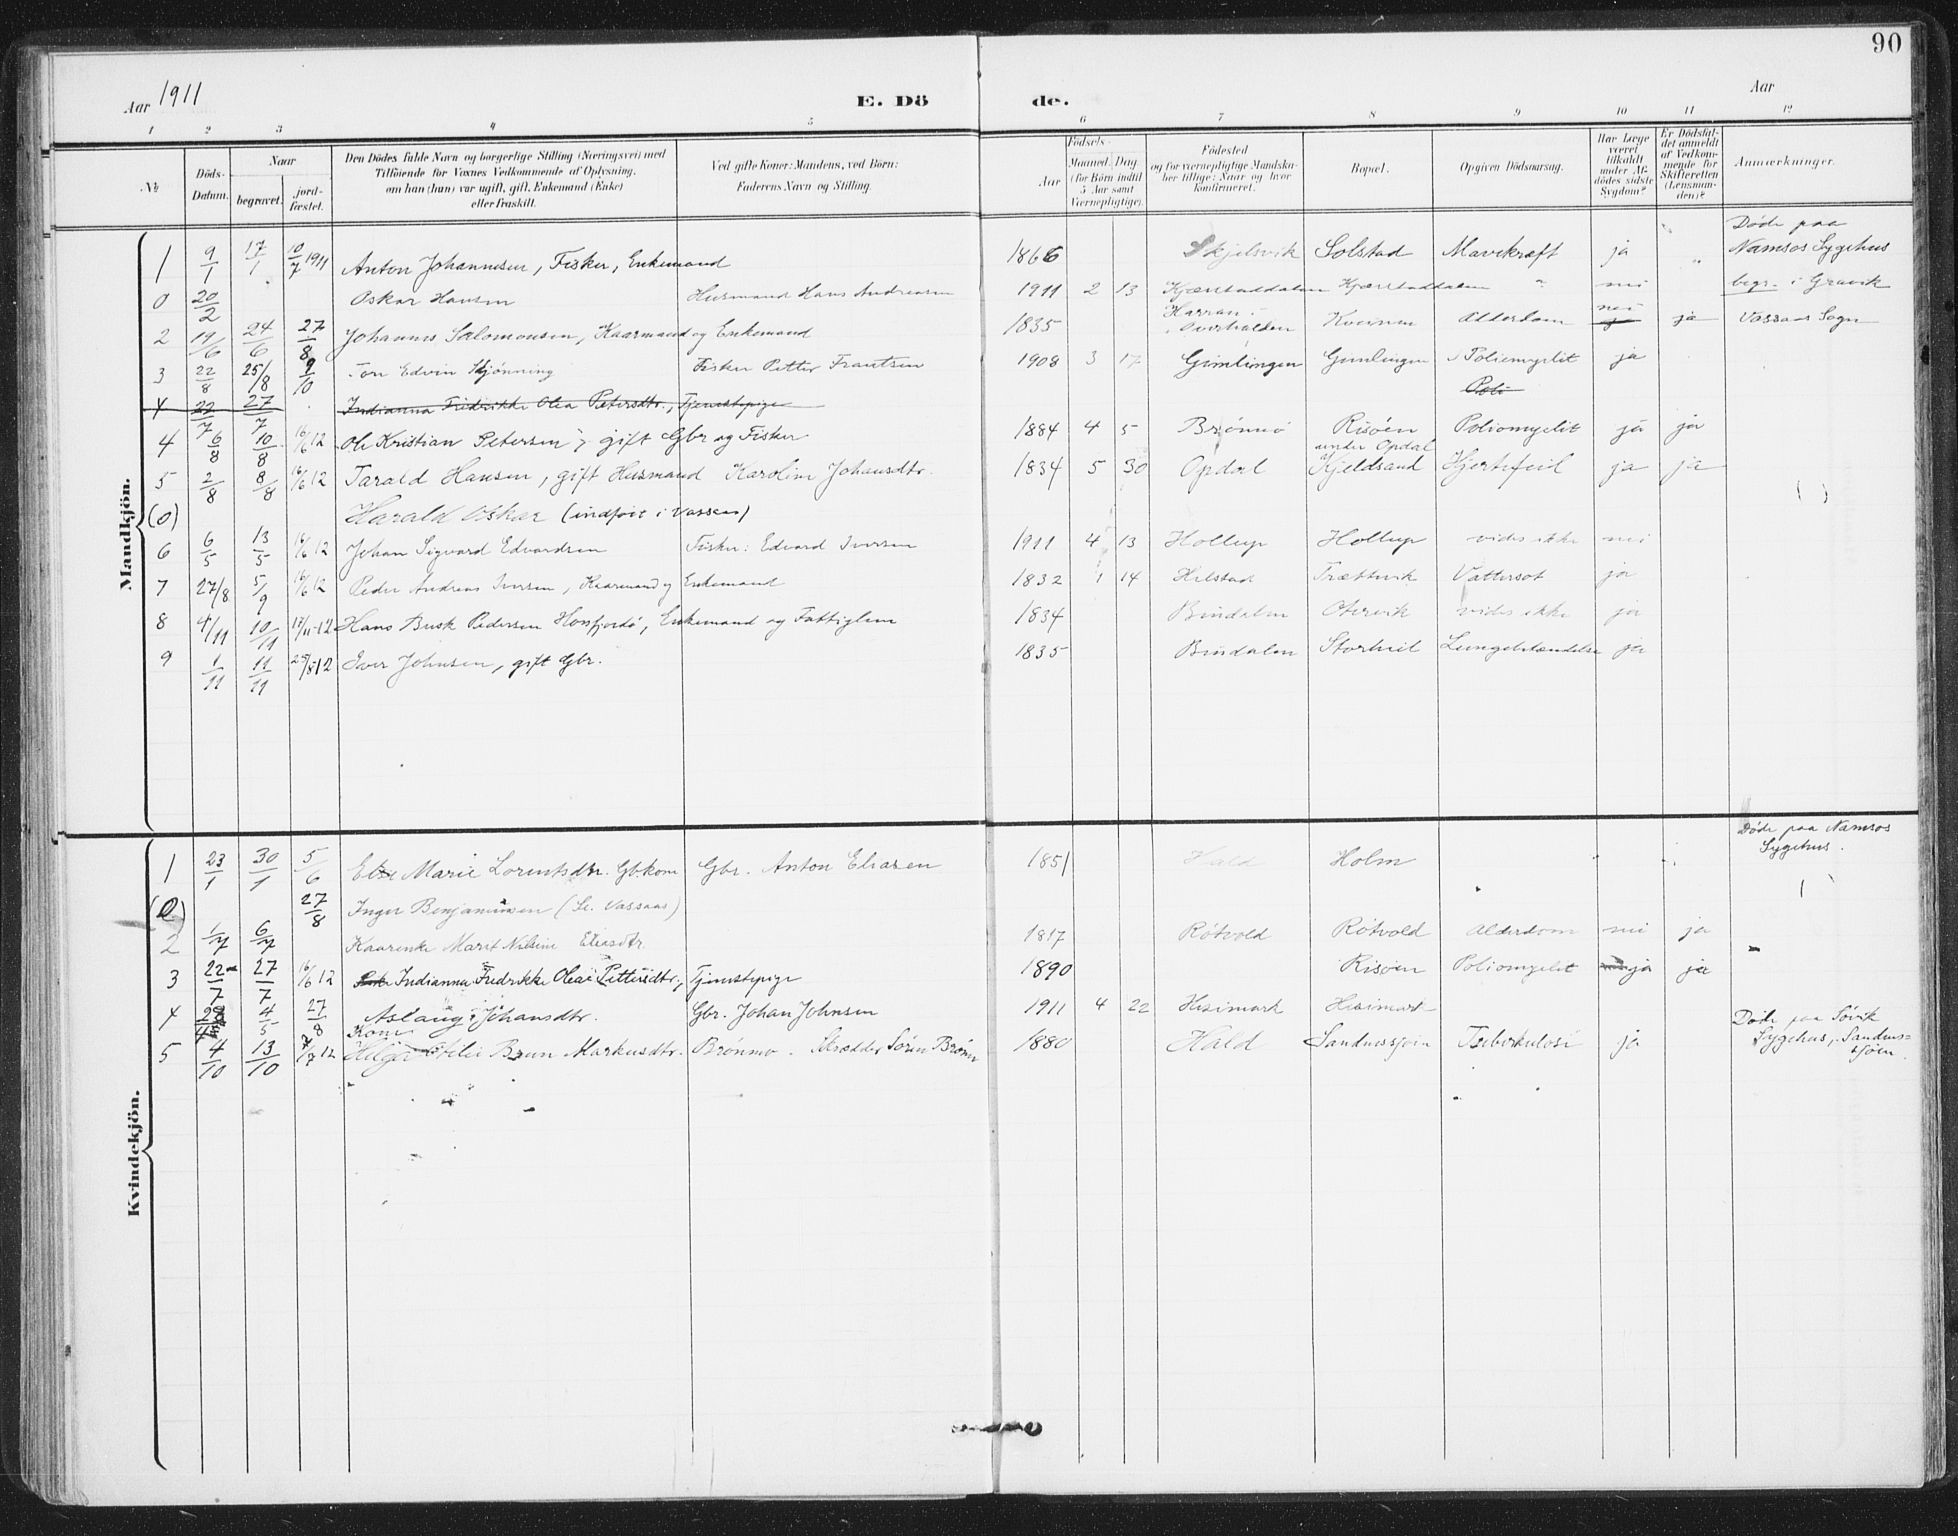 90
Aar 1911
E. Dö
de.
Aar
1 2 3 4 5 6 7 8 9 10 11 12
№
Döds-Datum.
Naar
begravet.
jord-fæstet.
Den Dödes fulde Navn og borgerlige Stilling (Næringsvei) med
Tilföiende for Voxnes Vedkommende af Oplysning,
om han (hun) var ugift, gift, Enkemand (Enke)
eller fraskilt.
Ved gifte Koner: Mandens, ved Börn:
Faderens Navn og Stilling.
Födsels-
Aar
Maaned. Dag.
(for Börn indtil
5 Aar samt
Værnepligtige).
Födested
og for værnepligtige Mandska-
ber tillige: Naar og hvor
konfirmeret.
Bopæl.
Opgiven Dödsaarsag.
Har Læge
været
tilkaldt
under Af-
dödes sidste
Sygdom?
Er Dödsfal-
det anmeldt
af Vedkom-
mende for
Skifteretten
(Lensman-
den)?
Anmærkninger.
Mandkjön.
1 9/1 17/1 10/7 1911 Anton Johannesen, Fisker, Enkemand 1866 Skjelsvik Solstad Mavekræft ja " Døde paa Namsos Sygehus
0 20/2 Oskar Hansen Husmand Hans Andreasen 1911 2 13 Kjærstaddalen Kjærstaddalen " nei begr. i Gravik
2 19/6 24/6 27/8 Johannes Salomonsen, Kaarmand og Enkemand 1835 Harran - Overhalden Kvinnen Alderdom nei ja Vassaas Sogn
3 22/8 25/8 9/10 Tore Edvin Skjønning Fisker Petter Frantsen 1908 3 17 Gimlingen Gimlingen Poliomyelit ja
Poli
4 22/7 27/7 Indianna Fredrikke Olea Petersdtr., Tjenestepige
4 6/8 10/8 16/6 12 Ole Kristian Petersen, gift Gbr og Fisker 1884 4 5 Brønnø Risøen Poliomyelit ja ja
5 2/8 8/8 16/6 12 Tarald Hansen, gift Husmand Karoline Johansdtr. 1834 5 30 Opdal under Opdal Kjeldsand Hjertefeil ja ja
(0) Harald Oskar (indført i Vassaas)
6 6/5 13/5 16/6 12 Johan Sigvard Edvardsen Fisker: Edvard Iversen 1911 4 13 Hollup Hollup vides ikke nei
7 27/8 5/9 16/6 12 Peder Andreas Iversen, Kaarmand og Enkemand 1832 1 14 Helstad Trættvik Vattersot ja
8 4/11 10/11 17/11-12 Hans Busk Pedersen Horsfjord, Enkemand og Fattiglem 1834 Bindalen Otervik vides ikke ja
9 1/11 11/11 25/8 12 Iver Johnsen, gift Gbr. 1835 Bindalen Storheil Lungebetændelse ja
Kvindekjön.
1 23/1 30/1 5/6 Else Marie Lorentsdtr. Gbkone Gbr. Anton Eliasen 1851 Hald Holm Døde paa Namsos Sygehus.
(0) 27/8 Inger Benjaminsen (Se. Vassaas)
2 1/7 6/7 Kaarenke Marit Nilsine Eliasdtr. 1817 Røtvold Røtvold Alderdom nei ja
3 22/7 27/7 16/6 12 Indianna Fredrikke Olea Pettersdtr, Tjenestepige 1890 Risøen Poliomyelit ja ja
4 28/4 4/5 27/8 Aslaug Johansdtr. Gbr. Johan Johnsen 1911 4 22 Heximark Heximark
5 4/10 13/10 7/7 12 Kone Helga Otilie Brun Markusdtr. Brønmo. Skrædder Søren Brønmo 1880 Hald Sandnessjøen Tuberkulosi ja Døde paa Søvik Sygehus, Sandnes=sjøen.